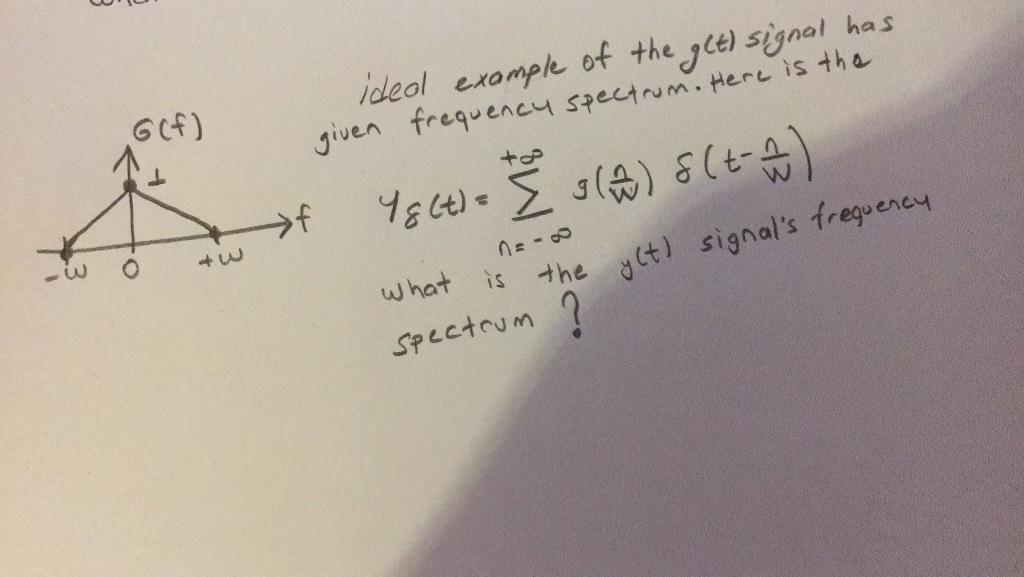 ideal example of the g(t) signal has
given frequency spectrum. Here is the
G(f)
1
f
-W 0 +W
y_δ(t) = Σ_{n=-∞}^{+∞} g(n/W) δ(t - n/W)
what is the y(t) signal's frequency
spectrum ?